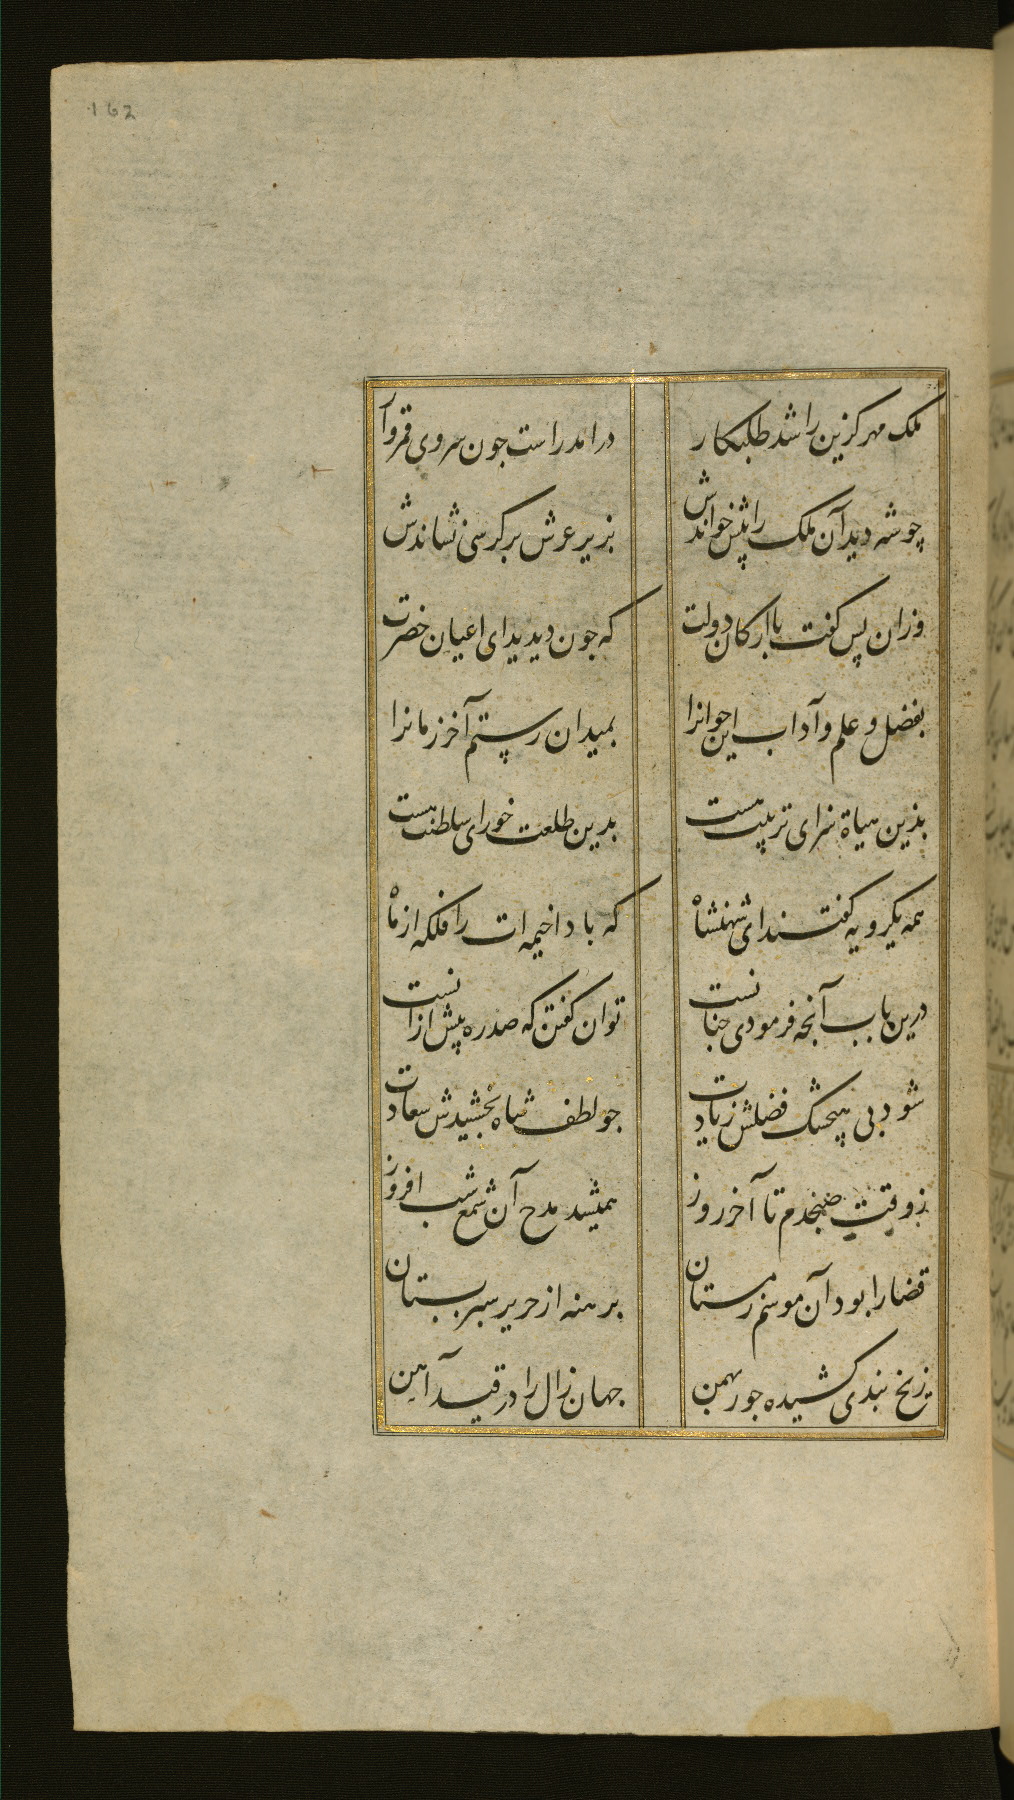 162
ملک مهر کزین را شد طلبکار
درامد راست جون سروی قمروار
چو شه دید آن ملک را پیش خواندش
بزیر عرش بر کرسی نشاندش
وزان پس کفت با ارکان دولت
که جون دیدید ای اعیان حضرت
بفضل و علم و آداب این جوانرا
بمیدان رستم آخر زمانرا
بذین هیاة سزای تربیت هست
بدین طلعت خورای سلطنت هست
همه یکرویه کفتند ای شهنشاه
که بادا خیمه ات را فلکه از ماه
درین باب آنچه فرمودی جنانست
توان کفتن که صد ره بیش ازانست
شود بی هیچ شک فضلش زیادت
جو لطف شاه بخشیدش سعادت
ز وقت صبحدم تا آخر روز
همیشد مدح آن شمع شب افروز
قضا را بود آن موسم زمستان
برهنه از حریر سبز بستان
ز یخ بندی کشیده جور بهمن
جهان زال را در قید آهن